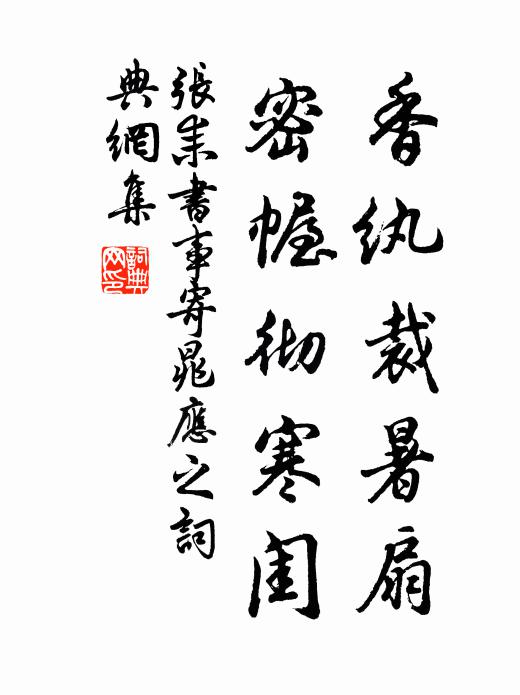 香紈裁暑扇
密幄彻寒闺
張耒書事寄晁應之詞
典網集
詞典
网印